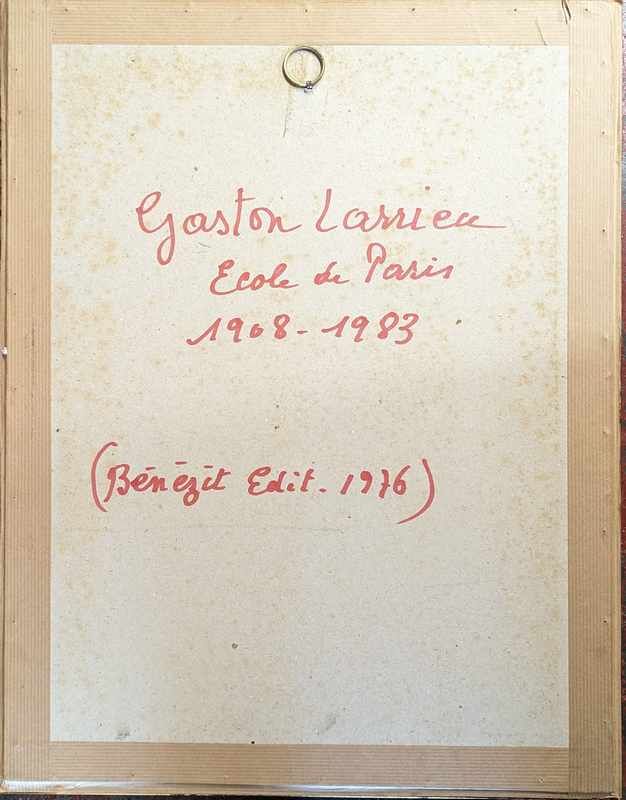 Gaston Larrieu
Ecole de Paris
1908-1983
(Bénézit Edit. 1976)